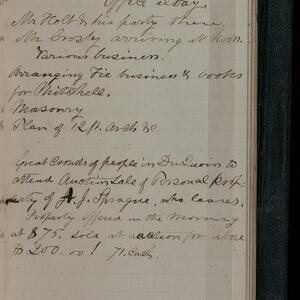 Office to day.
Mr Holt & his party there,
Mr Crosby arriving at noon.
Various business.
Arranging Tie business & books
for Mitchell.
Masonry
Plan of 12 ft. Arch &c.
Great crowds of people in DuQuoin to
attend Auction Sale of Personal Prop-
erty of A. J. Sprague, who leaves.
Property offered in the morning
at $75. sold at auction for above
$200.00! 71. cash.